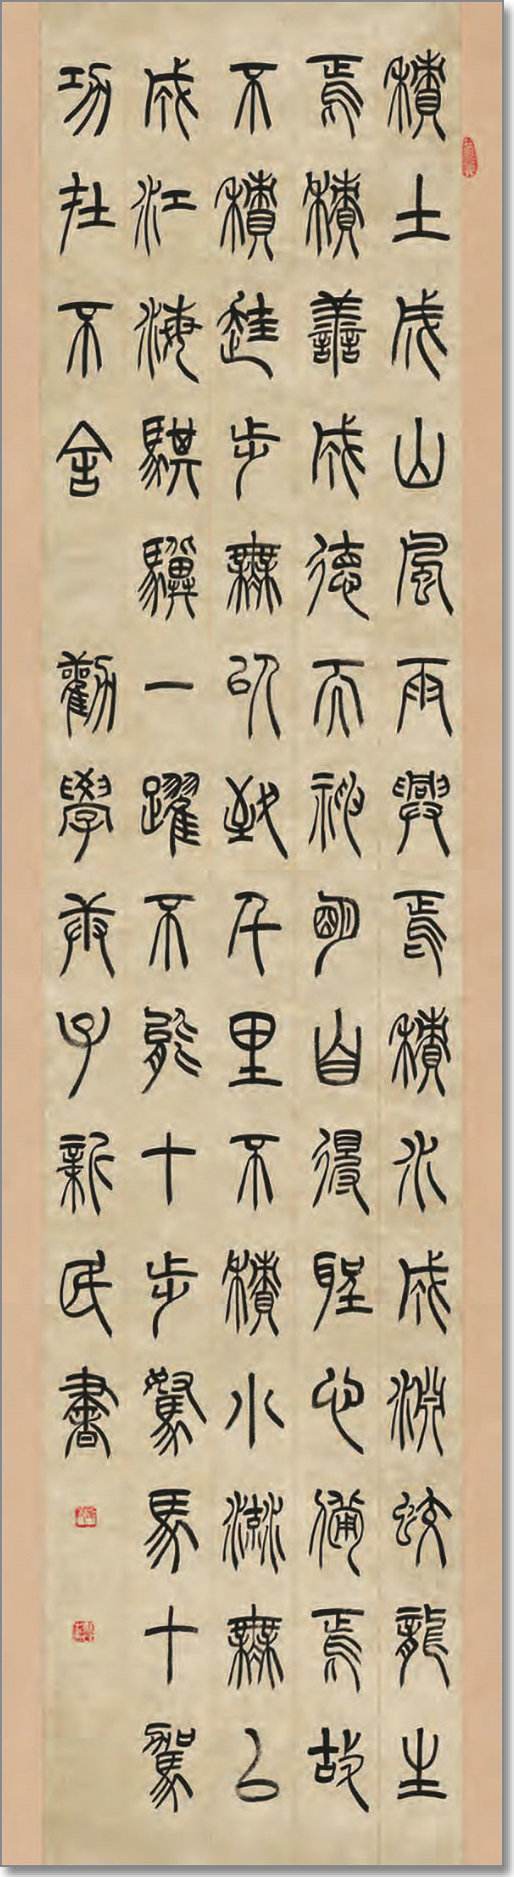 積土成山風雨興焉積水成淵蛟龍生
焉積善成德而神明自得聖心備焉故
不積跬步無以致千里不積小流無以
成江海騏驥一躍不能十步駑馬十駕
功在不舍 勸學庚子新民書